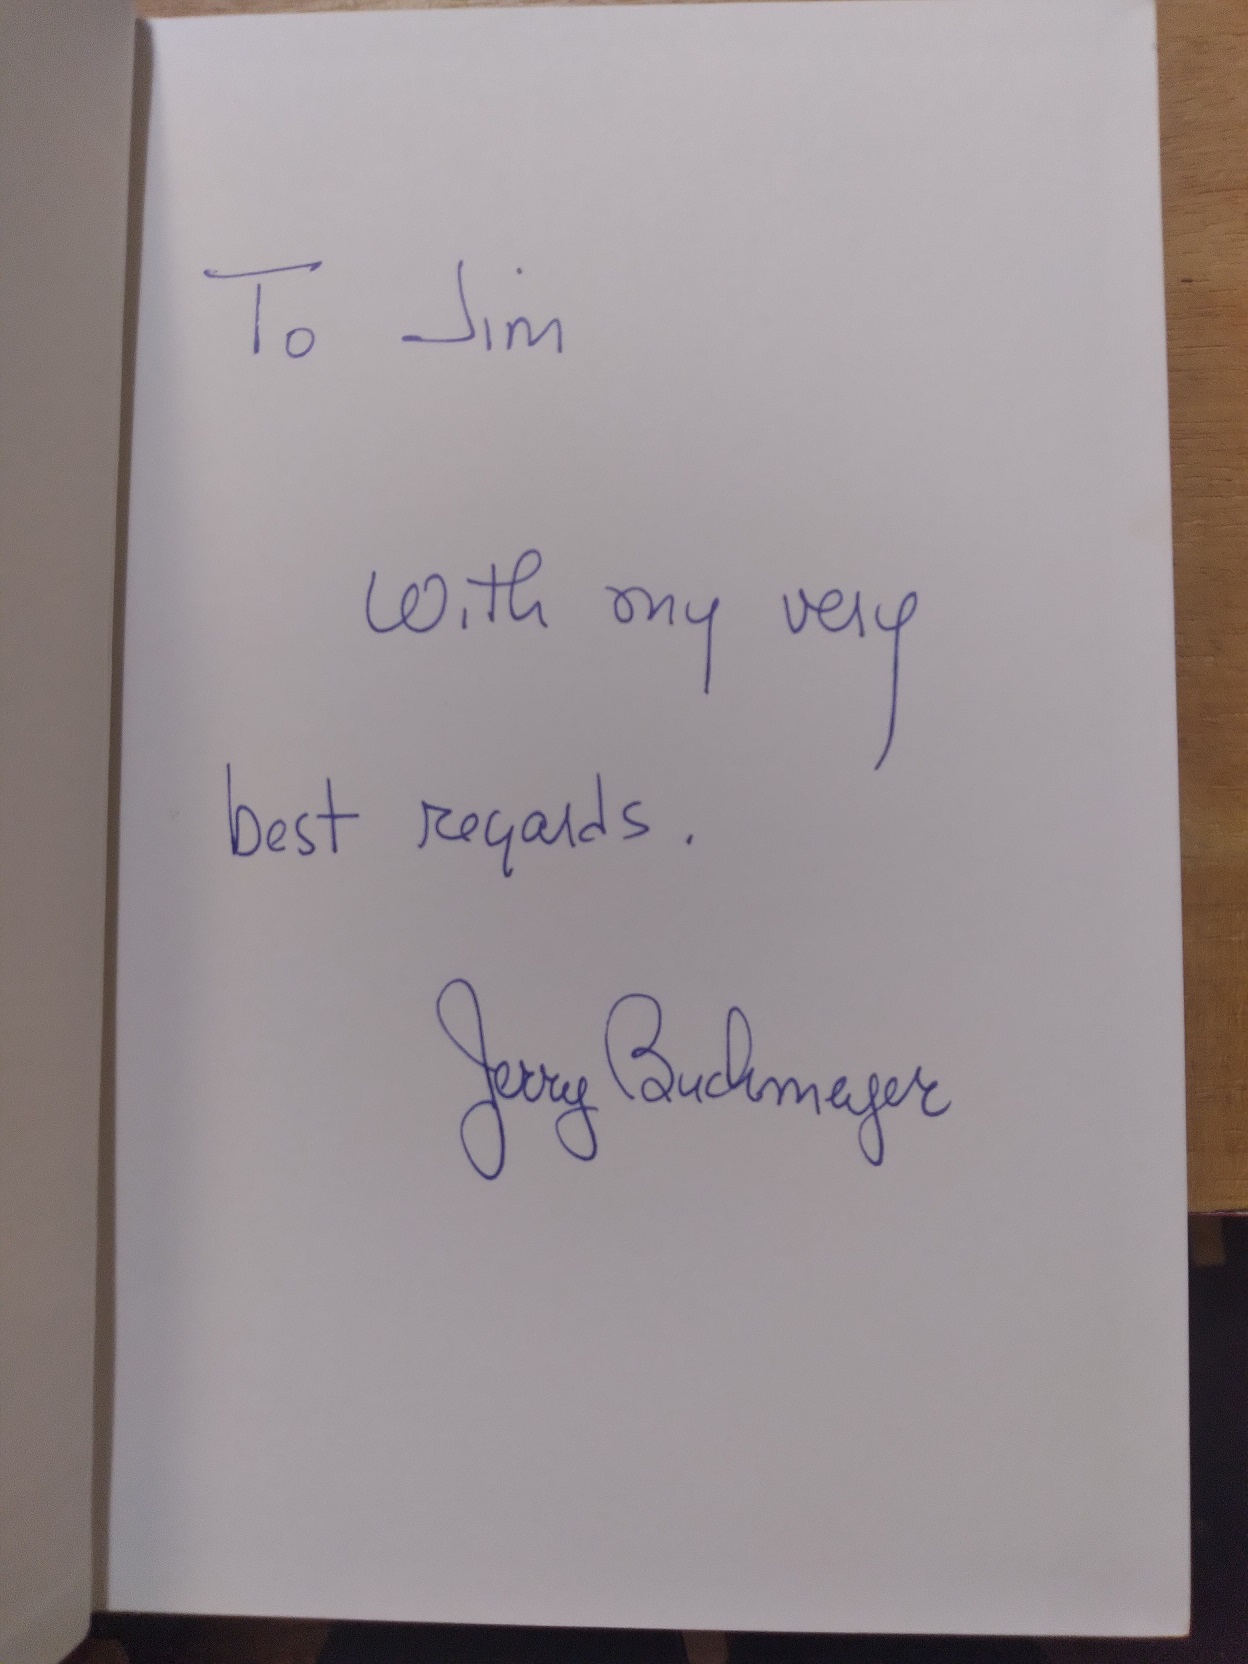 To Jim
With my very
best regards.
Jerry Buchmeyer